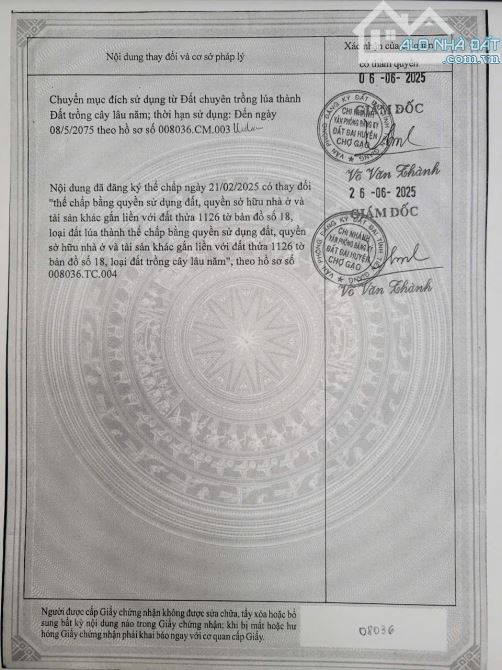 ALO NHÀ ĐẤT
.com.vn
Nội dung thay đổi và cơ sở pháp lý
Xác nhận của cơ quan
có thẩm quyền
Chuyển mục đích sử dụng từ Đất chuyên trồng lúa thành
Đất trồng cây lâu năm; thời hạn sử dụng: Đến ngày
08/5/2075 theo hồ sơ số 008036.CM.003
06-06-2025
GIÁM ĐỐC
VĂN PHÒNG ĐĂNG KÝ ĐẤT ĐAI TỈNH TIỀN GIANG
CHI NHÁNH
VĂN PHÒNG ĐĂNG KÝ
ĐẤT ĐAI HUYỆN
CHỢ GẠO
Võ Văn Thành
Nội dung đã đăng ký thế chấp ngày 21/02/2025 có thay đổi
"thế chấp bằng quyền sử dụng đất, quyền sở hữu nhà ở và
tài sản khác gắn liền với đất thửa 1126 tờ bản đồ số 18,
loại đất lúa thành thế chấp bằng quyền sử dụng đất, quyền
sở hữu nhà ở và tài sản khác gắn liền với đất thửa 1126 tờ
bản đồ số 18, loại đất trồng cây lâu năm", theo hồ sơ số
008036.TC.004
26-06-2025
GIÁM ĐỐC
VĂN PHÒNG ĐĂNG KÝ ĐẤT ĐAI TỈNH TIỀN GIANG
CHI NHÁNH
VĂN PHÒNG ĐĂNG KÝ
ĐẤT ĐAI HUYỆN
CHỢ GẠO
Võ Văn Thành
Người được cấp Giấy chứng nhận không được sửa chữa, tẩy xóa hoặc bổ
sung bất kỳ nội dung nào trong Giấy chứng nhận; khi bị mất hoặc hư
hỏng Giấy chứng nhận phải khai báo ngay với cơ quan cấp Giấy.
08036